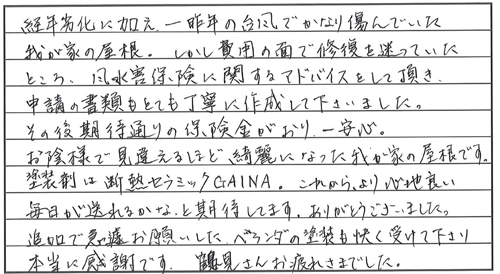 経年劣化に加え、一昨年の台風でかなり傷んでいた
我が家の屋根。しかし費用の面で修復を迷っていた
ところ、風水害保険に関するアドバイスをして頂き、
申請の書類もとても丁寧に作成して下さいました。
その後期待通りの保険金がおり、一安心。
お陰様で見違えるほど綺麗になった我が家の屋根です。
塗装剤は断熱セラミックGAINA。これから、より心地良い
毎日が送れるかな、と期待してます。ありがとうございました。
追加で急遽お願いした、ベランダの塗装も快く受けて下さり
本当に感謝です。鶴見さんお疲れさまでした。